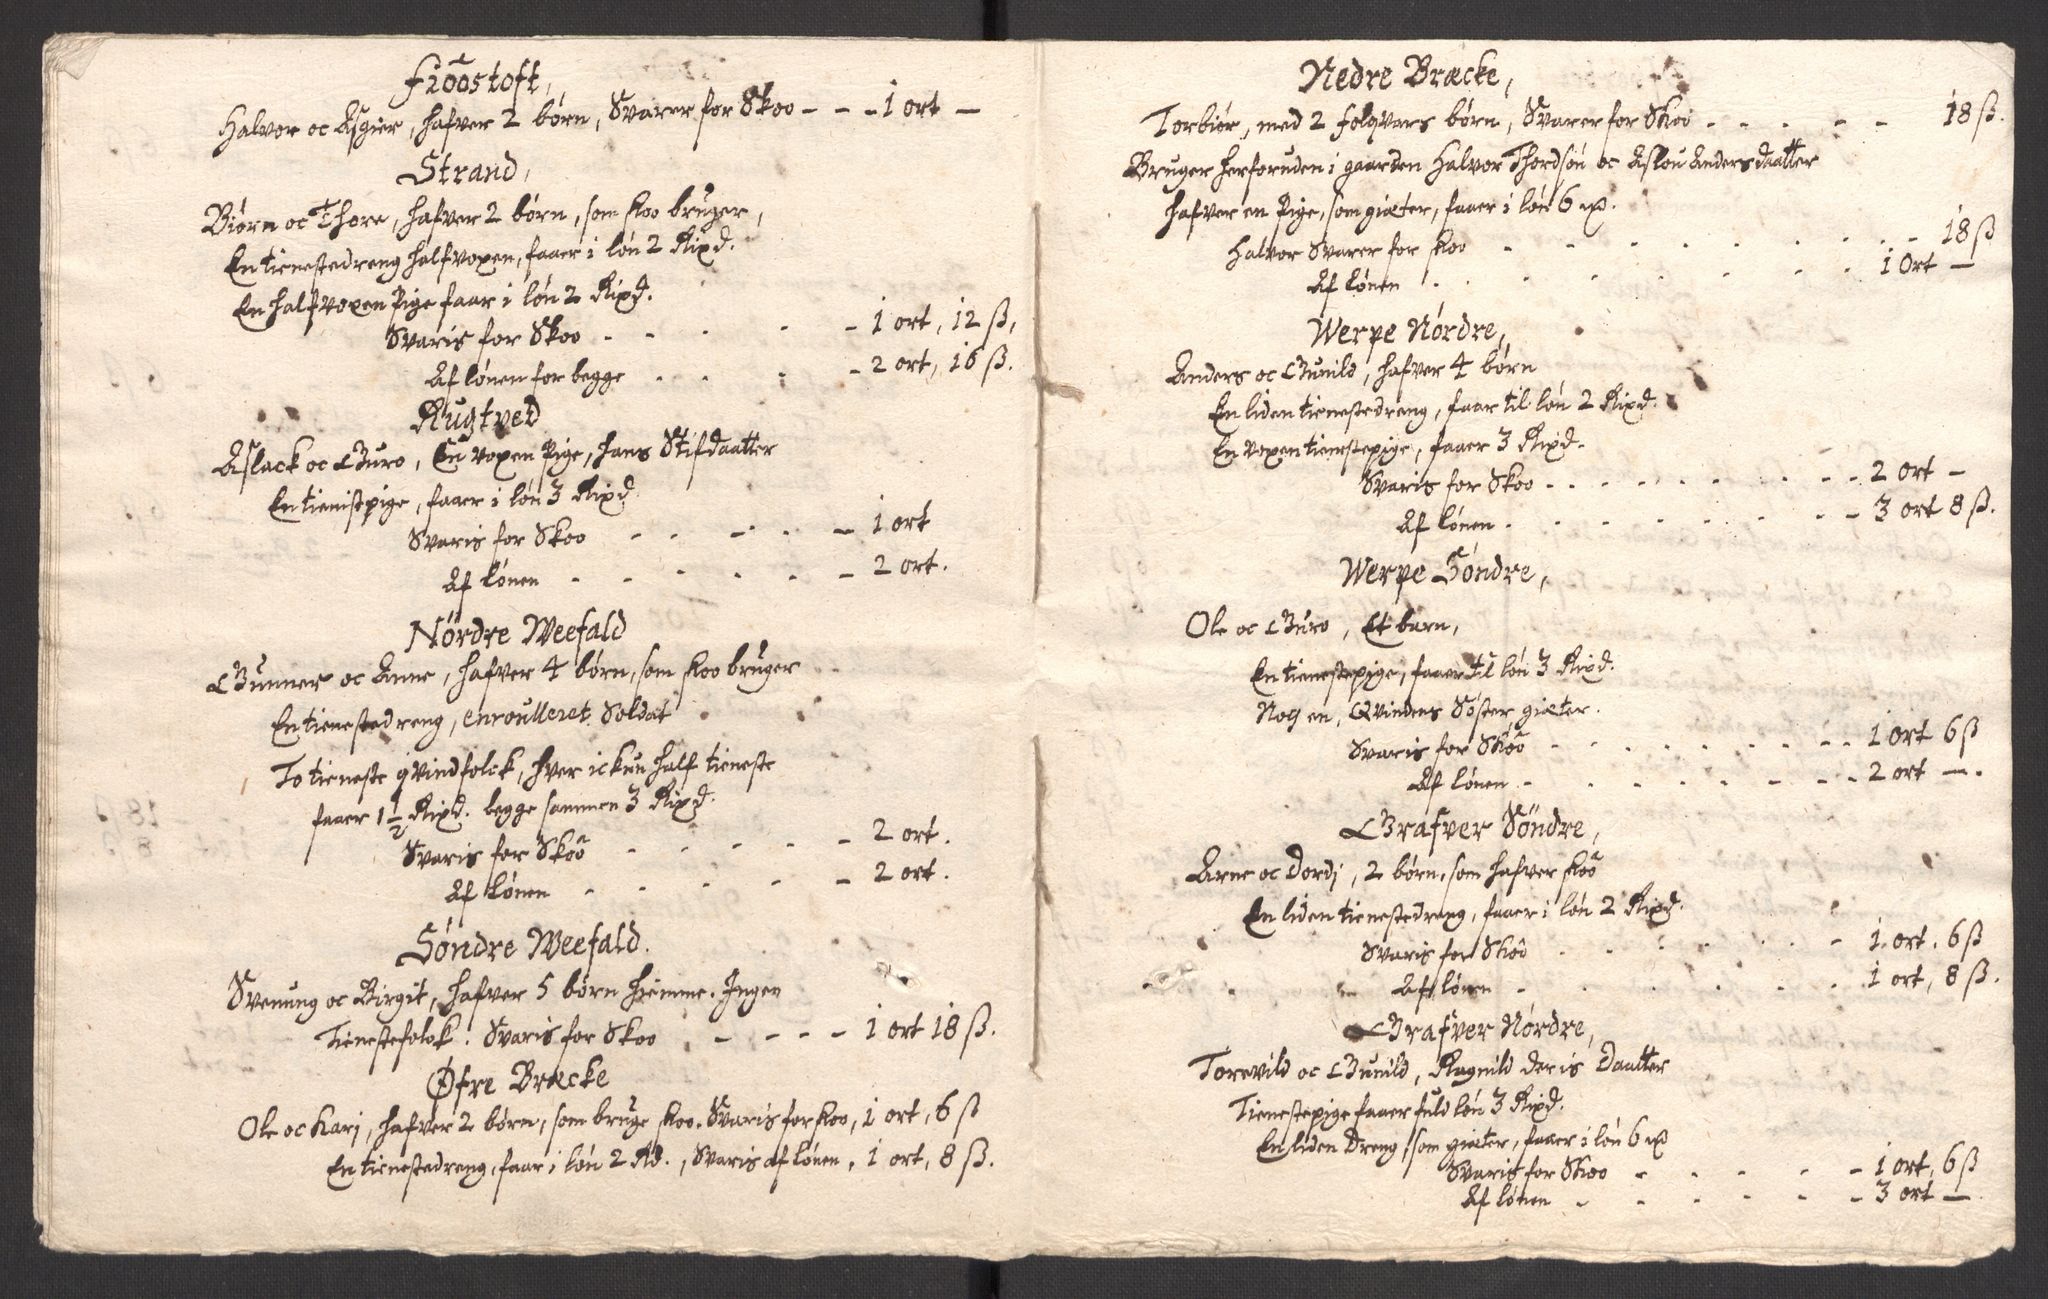 Fröostoft,
Halvor oc Asgier, hafver 2 børn, Svarer for Skoo - - - 1 ort -
Strand,
Biørn oc Thore, hafver 2 børn, som skoo bruger,
En tienestedreng halfvoxen, faaer i løn 2 Rixd.
En halfvoxen Pige faar i løn 2 Rixd.
Svaris for Skoo - - - - 1 ort, 12 ß,
Af lønen for begge - - - - 2 ort, 16 ß.
Rugtved
Aslack oc Guro, En voxen Pige, hans Stifdaatter
En tienistpige, faaer i løn 3 Rixd
Svaris for Skoo - - - - - 1 ort
Af lønen - - - - - - 2 ort.
Nørdre Weefald
Gunner oc Anne, hafver 4 børn, som skoo bruger
En tienestedreng, enroulleret Soldat
To tieneste qvindfolck, hver ickun half tieneste
faaer 1 1/2 Rixd. begge sammen 3 Rixd.
Svaris for Skoo - - - - - 2 ort.
Af lønen - - - - - 2 ort.
Søndre Weefald.
Svenung oc Birgit, hafver 5 børn hiemme. Ingen
Tienestefolck. Svaris for Skoo - - - - 1 ort 18 ß.
Øfre Bræcke
Ole oc Karj, hafver 2 børn, som bruge skoo. Svaris for skoo, 1 ort, 6 ß
En tienestedreng, faar i løn 2 Rd., Svaris af lønen, 1 ort, 8 ß.
Nedre Bræcke,
Torbiør, med 2 folgvars børn, Svarer for Skoo - - - - - 18 ß.
Bruger herforuden i gaarden Halvor Thordsøn oc Aslou Andersdaatter
hafver en Pige, som giæter, faaer i løn 6
Halvor Svarer for skoo - - - - - - - - 18 ß
Af lønen - - - - - - - - 1 Ort -
Werpe Nørdre,
Anders oc Gunild, hafver 4 børn
En liden tienestedreng, faar til løn 2 Rixd.
En voxen tienestepige, faaer 3 Rixd.
Svaris for Skoo - - - - - - - - 2 ort -
Af lønen - - - - - - - - 3 ort 8 ß.
Werpe Søndre,
Ole oc Guro, Et barn,
En tienestepige, faaer til løn 3 Rixd.
Noch en, Qvindens Søster, giæter.
Svaris for Skoo - - - - - - - - 1 ort 6 ß
Af lønen - - - - - - - - 2 ort -.
Grafver Søndre,
Arne oc Dordj, 2 børn, som hafver skoo
En liden tienestedreng, faaer i løn 2 Rixd.
Svaris for Skoo - - - - - - 1. ort. 6 ß
Af lønen - - - - - - 1 ort, 8 ß.
Grafver Nørdre,
Torevild oc Gunild, Ragnild deris Daatter
Tienestepige faaer fuld løn 3 Rixd.
En liden Dreng, som giæter, faaer i løn 6
Svaris for Skoo - - - - - 1 ort, 6 ß
Af lønen - - - - - - 3 ort -